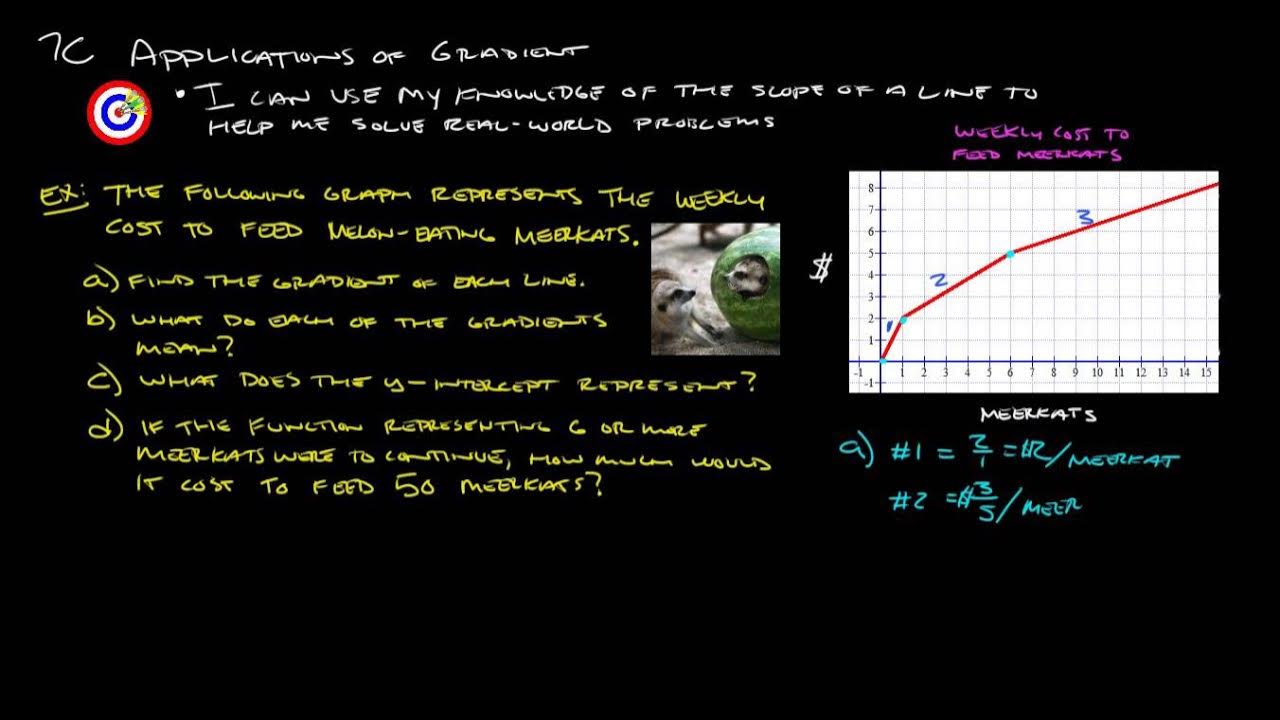 7C APPLICATIONS OF GRADIENT
• I CAN USE MY KNOWLEDGE OF THE SLOPE OF A LINE TO
HELP ME SOLVE REAL-WORLD PROBLEMS
EX: THE FOLLOWING GRAPH REPRESENTS THE WEEKLY
COST TO FEED MELON-EATING MEERKATS.
a) FIND THE GRADIENT OF EACH LINE.
b) WHAT DO EACH OF THE GRADIENTS
MEAN?
c) WHAT DOES THE y-INTERCEPT REPRESENT?
d) IF THE FUNCTION REPRESENTING 6 OR MORE
MEERKATS WERE TO CONTINUE, HOW MUCH WOULD
IT COST TO FEED 50 MEERKATS?
WEEKLY COST TO
FEED MEERKATS
8
7
6
5
4
3
2
1
-1
-1 1 2 3 4 5 6 7 8 9 10 11 12 13 14 15
1
2
3
$
MEERKATS
a) #1 = 2/1 = $2/MEERKAT
#2 = $3/5/MEER